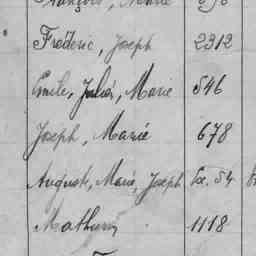 Frédéric, Joseph 2312
Emile, Julien, Marie 546
Joseph, Marie 678
Auguste, Marie, Joseph 54
Mathurin 1118